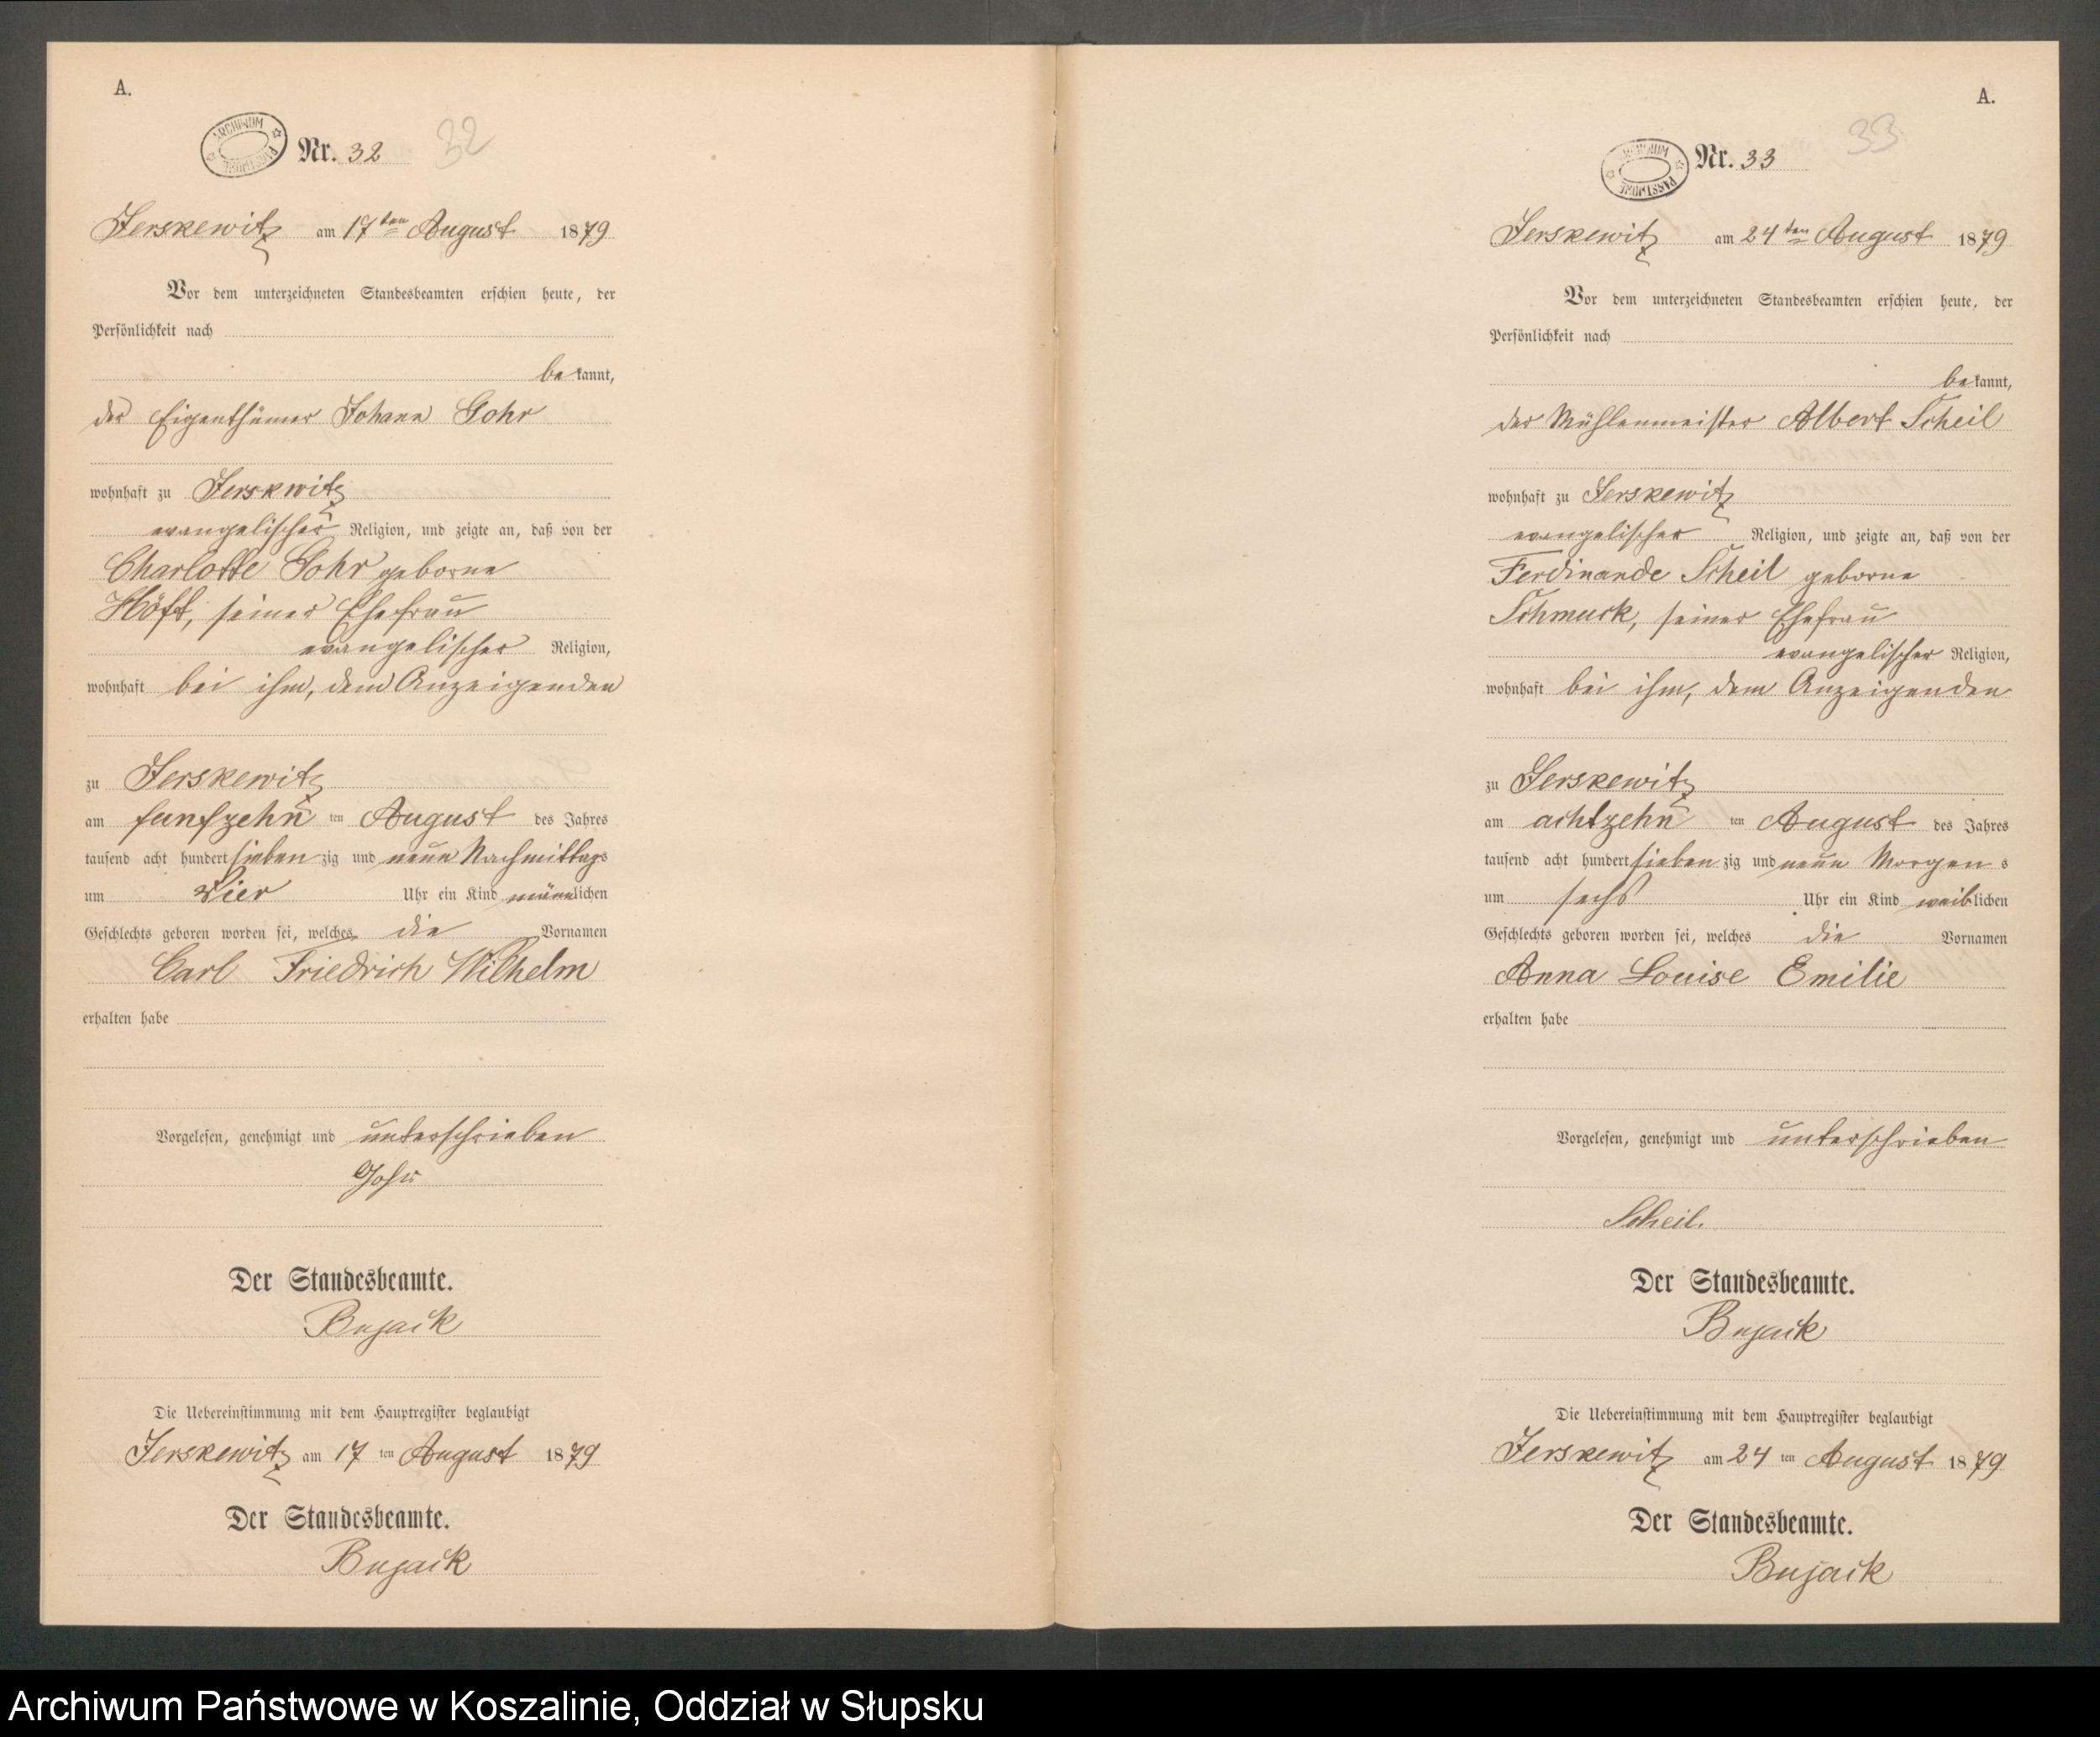 A.
ARCHIWUM PAŃSTWOWE
Nr. 32
32
Jerskewitz am 17ten August 1879
Vor dem unterzeichneten Standesbeamten erschien heute, der
Persönlichkeit nach
bekannt,
der Eigenthümer Johann Gohr
wohnhaft zu Jerskwitz
evangelischer Religion, und zeigte an, daß von der
Charlotte Gohr geborne
Höft, seiner Ehefrau
evangelischer Religion,
wohnhaft bei ihm, dem Anzeigenden
zu Jerskewitz
am funfzehn ten August des Jahres
tausend acht hundert siebenzig und neun Nachmittags
um Vier Uhr ein Kind männlichen
Geschlechts geboren worden sei, welches die Vornamen
Carl Friedrich Wilhelm
erhalten habe
Vorgelesen, genehmigt und unterschrieben
Gohr
Der Standesbeamte.
Bujack
Die Uebereinstimmung mit dem Hauptregister beglaubigt
Jerskewitz am 17 ten August 1879
Der Standesbeamte.
Bujack
A.
ARCHIWUM PAŃSTWOWE
Nr. 33
33
Jerskewitz am 24ten August 1879
Vor dem unterzeichneten Standesbeamten erschien heute, der
Persönlichkeit nach
bekannt,
der Mühlenmeister Albert Scheil
wohnhaft zu Jerskewitz
evangelischer Religion, und zeigte an, daß von der
Ferdinande Scheil geborne
Schmuck, seiner Ehefrau
evangelischer Religion,
wohnhaft bei ihm, dem Anzeigenden
zu Jerskewitz
am achtzehn ten August des Jahres
tausend acht hundert siebenzig und neun Morgens
um sechs Uhr ein Kind weiblichen
Geschlechts geboren worden sei, welches die Vornamen
Anna Louise Emilie
erhalten habe
Vorgelesen, genehmigt und unterschrieben
Scheil.
Der Standesbeamte.
Bujack
Die Uebereinstimmung mit dem Hauptregister beglaubigt
Jerskewitz am 24 ten August 1879
Der Standesbeamte.
Bujack
Archiwum Państwowe w Koszalinie, Oddział w Słupsku